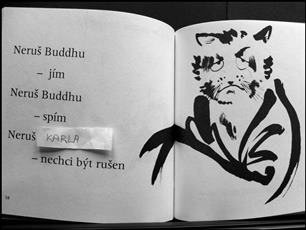 Neruš Buddhu
– jím
Neruš Buddhu
– spím
Neruš KARLA
– nechci být rušen